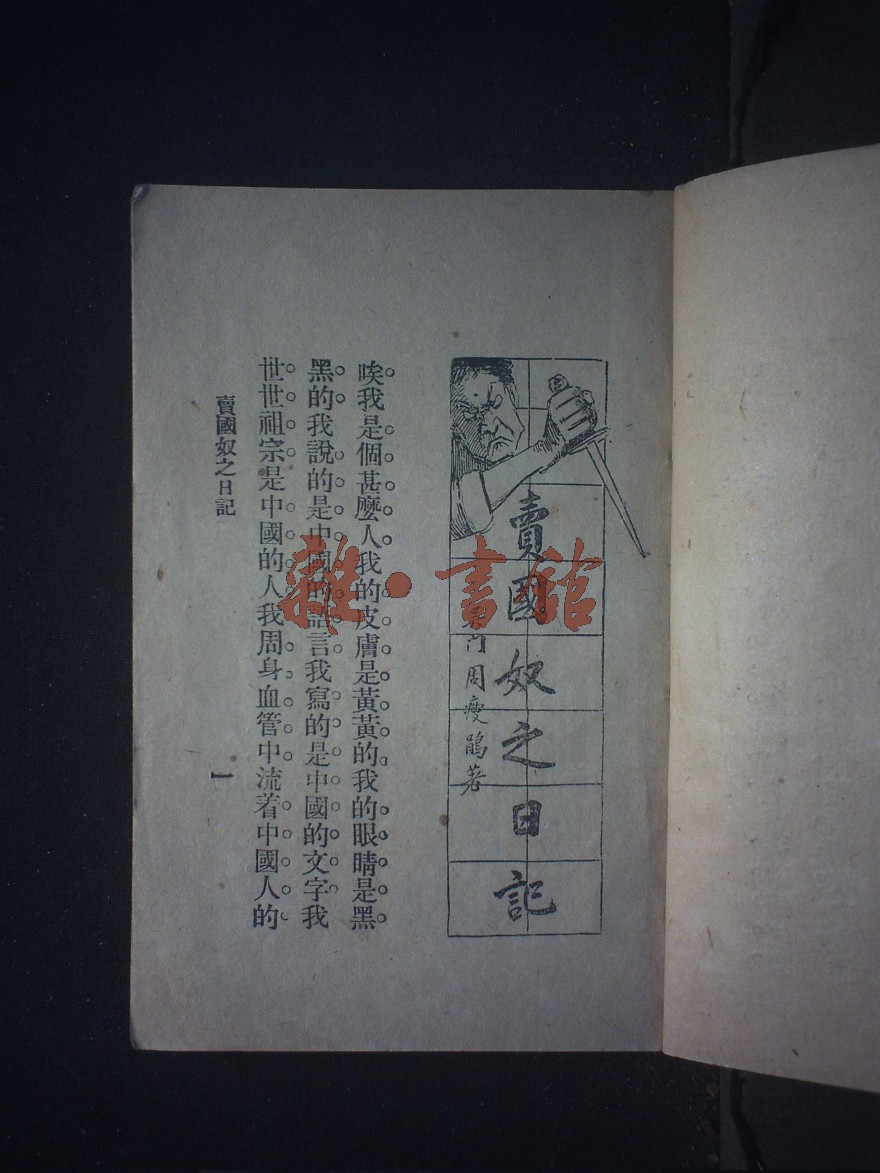 賣國奴之日記
吳门周瘦鵑著
唉我是個甚麼人我的皮膚是黃黃的我的眼睛是黑
黑的我說的是中國的語言我寫的是中國的文字我
世世祖宗是中國的人我周身血管中流着中國人的
賣國奴之日記
一
雜·書館